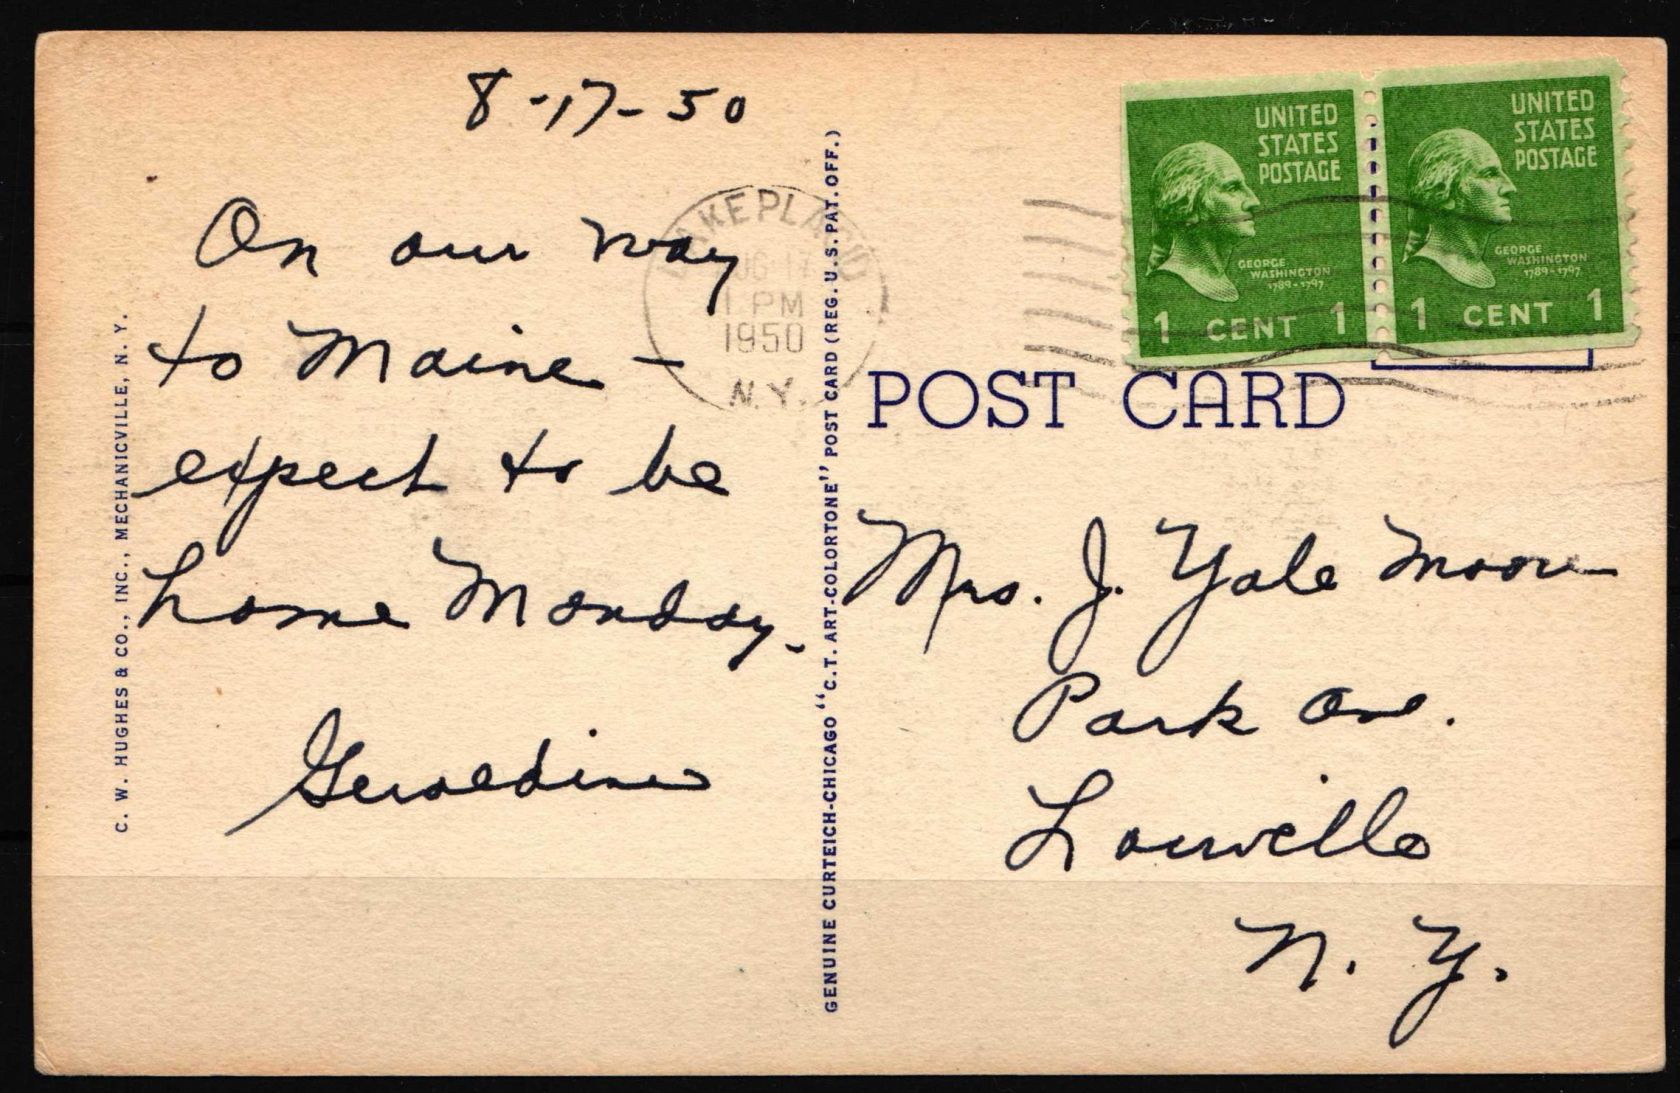 8-17-50
On our way
to Maine —
expect to be
home Monday.
Geraldine
C. W. HUGHES & CO., INC., MECHANICVILLE, N. Y.
GENUINE CURTEICH-CHICAGO "C.T. ART-COLORTONE" POST CARD (REG. U.S. PAT. OFF.)
LAKE PLACID
AUG 17
1 PM
1950
N.Y.
UNITED
STATES
POSTAGE
GEORGE
WASHINGTON
1789-1797
1 CENT 1
UNITED
STATES
POSTAGE
GEORGE
WASHINGTON
1789-1797
1 CENT 1
POST CARD
Mrs. J. Yale Moore
Park Ave.
Lowville
N. Y.